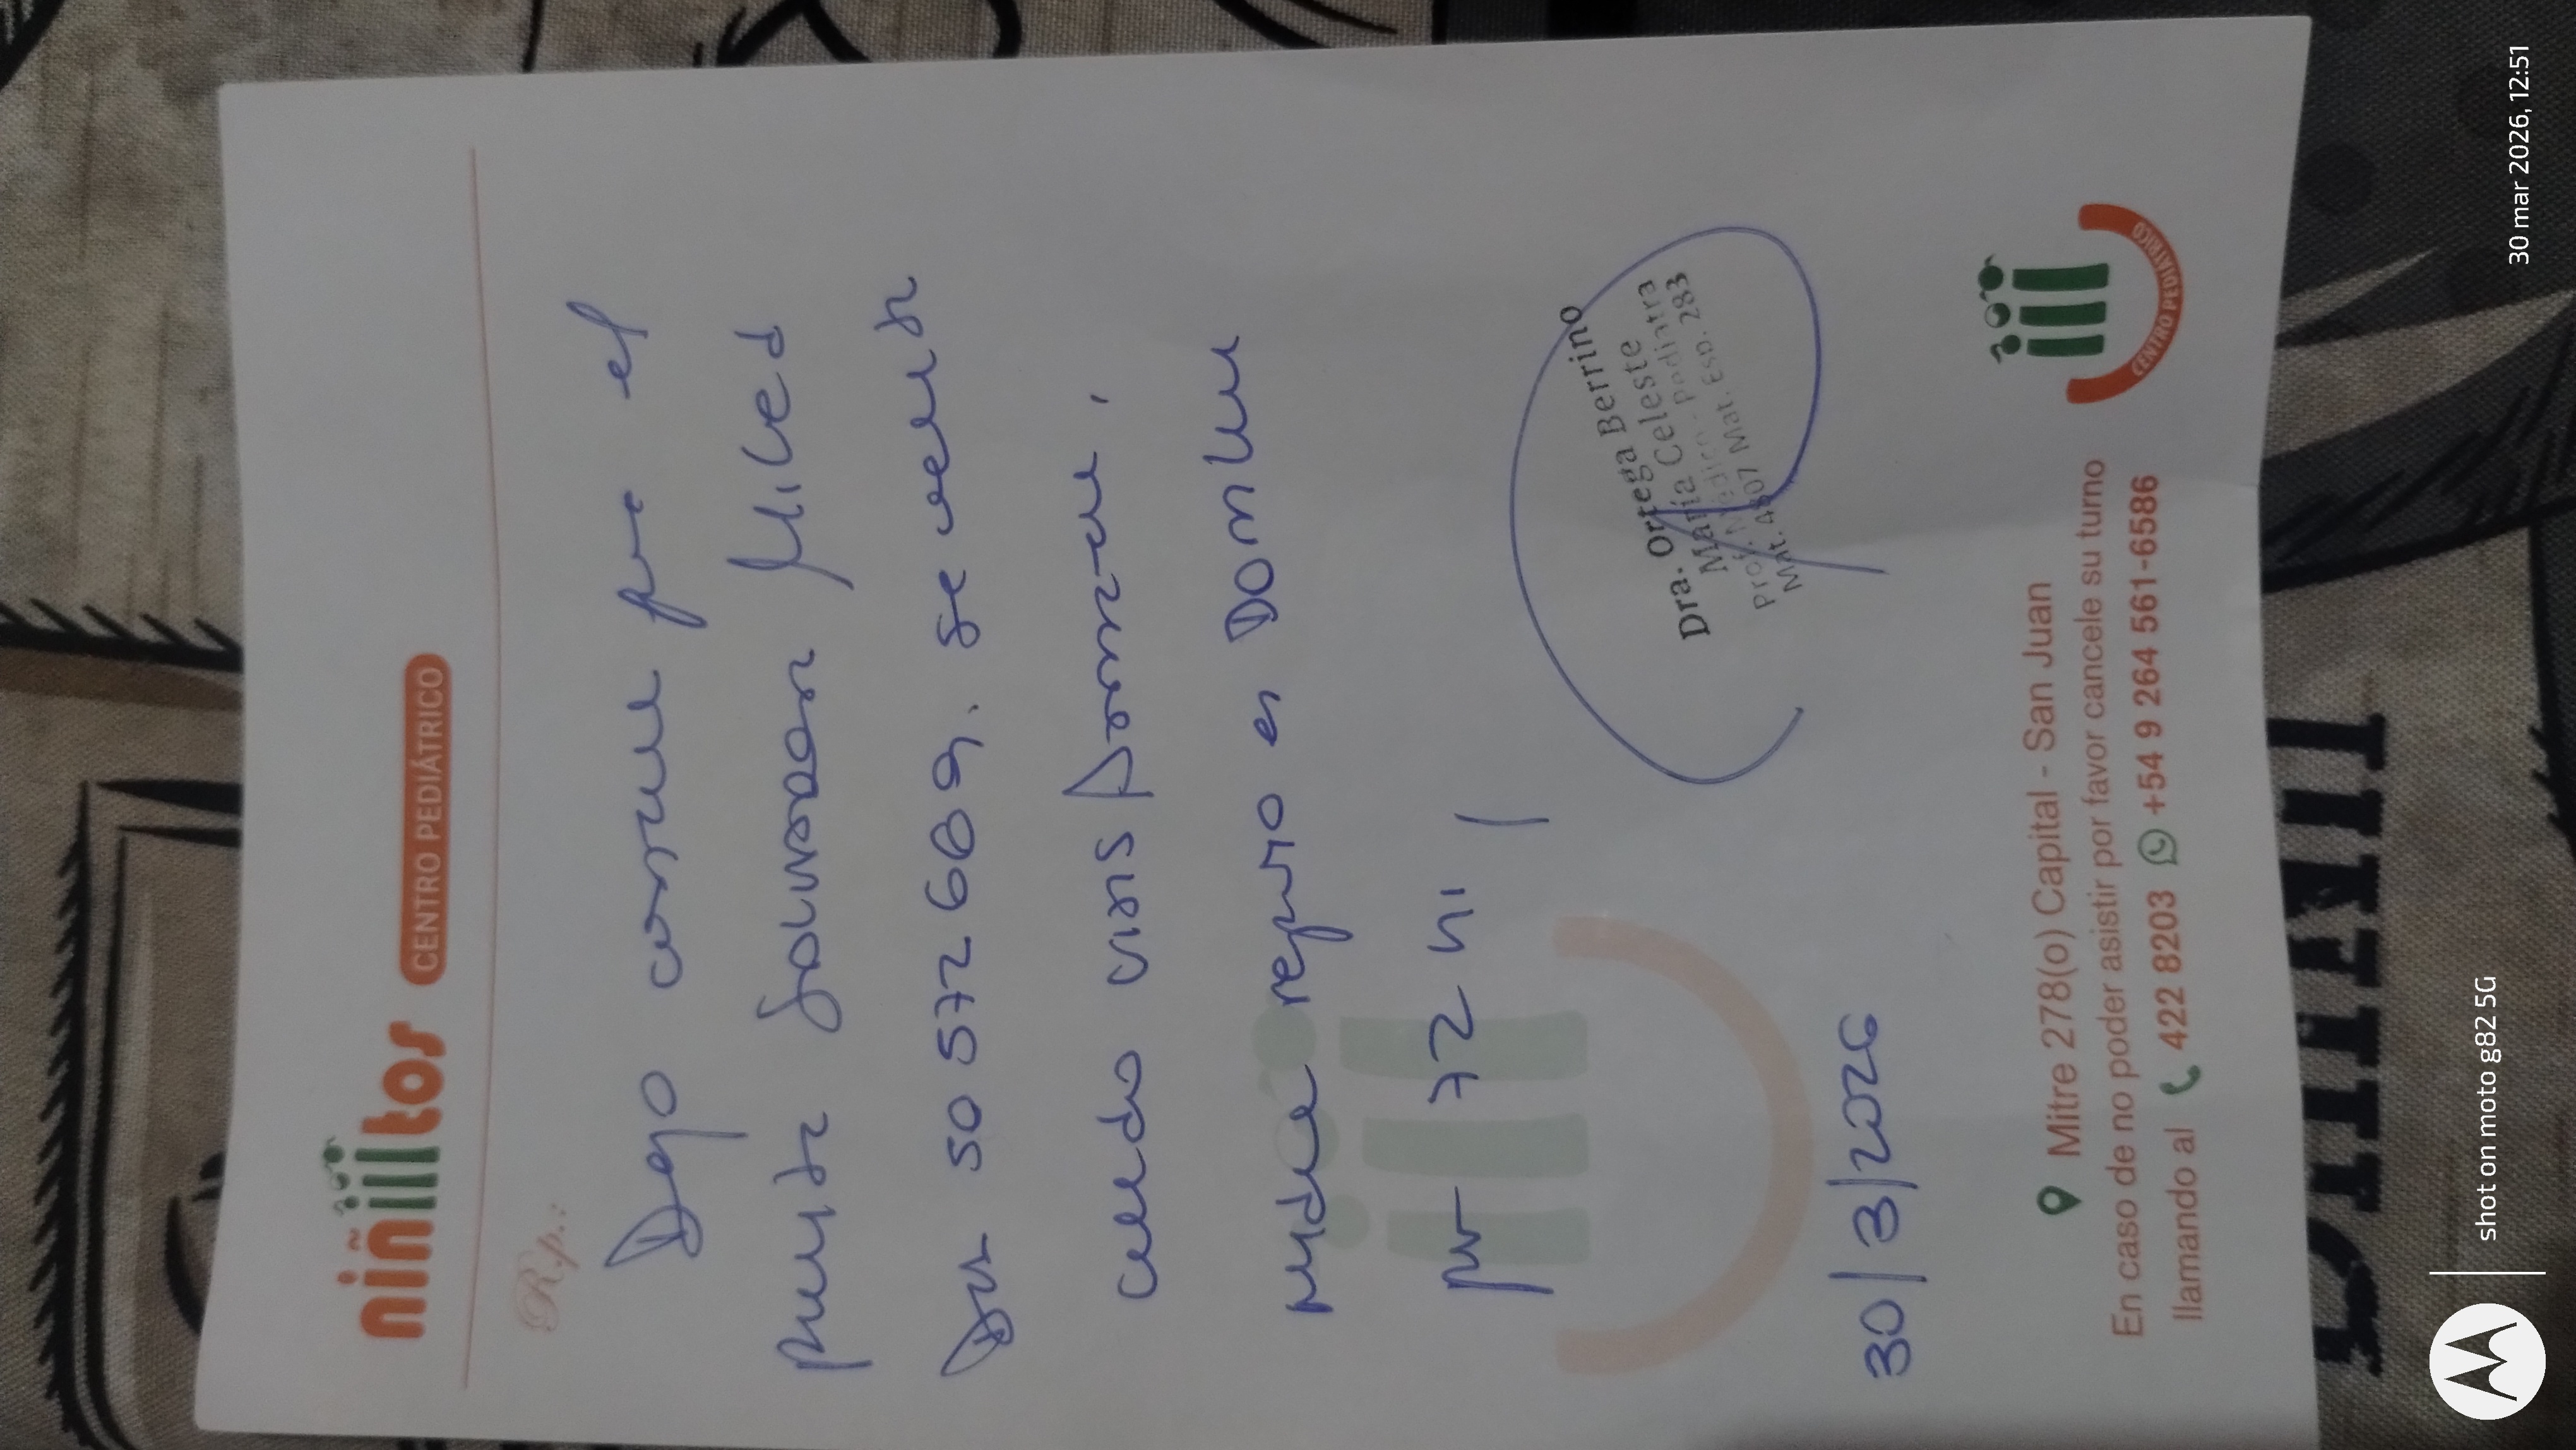 niñitos CENTRO PEDIÁTRICO
Rp.:
Dejo constancia que el
paciente
DNI 50 572 689. Se encuentra
cursando virosis
indico reposo en Domicilio
por 72 hs
Dra. Ortega Berrino
María Celeste
Mat. 4807 Mat. Esp. 283
30/3/2026
Mitre 278(o) Capital - San Juan
En caso de no poder asistir por favor cancele su turno
llamando al 422 8203 +54 9 264 561-6586
CENTRO PEDIÁTRICO
shot on moto g82 5G
30 mar 2026, 12:51